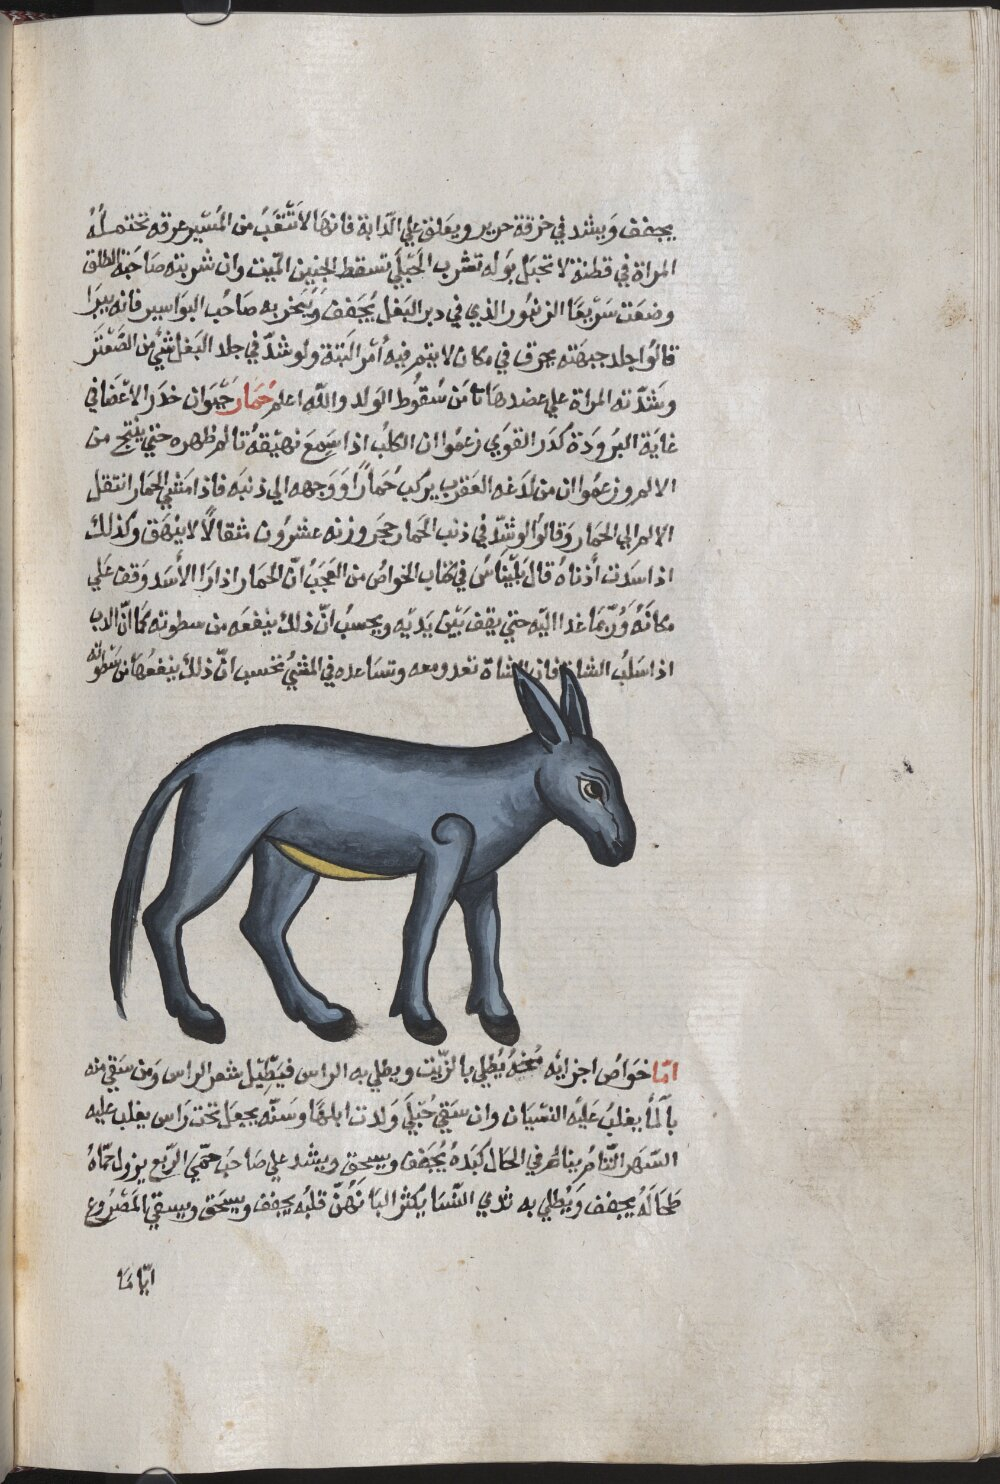 يجفف ويشد في خرقة حرير ويعلق علي الدابة فانها لا تتعب من المسير عرقه تحتمله
المراة في قطنة لا تحبل بوله تشرب الحبلي تسقط الجنين الميت وان شربته صاحبة الطلق
وضعت سريعا الزنبور الذي في دبر البغل يجفف ويبخر به صاحب البواسير فانه يبرا
قالوا جلد جبهته يحرق في مكان لا يتم فيه أمر البتة ولو شد في جلد البغل شي من الصعتر
وشدته المراة علي عضدها تامن سقوط الولد والله اعلم حمار حيوان خدر الاعضا في
غاية البرودة كدر القوي زعموا ان الكلب اذا سمع نهيقه تالم ظهره حتي ينتج من
الالم وزعموا ان من لدغه العقرب يركب حمارا ووجهه الي ذنبه فاذا مشي الحمار انتقل
الالم الي الحمار وقالوا لو شد في ذنب الحمار حجر وزنه عشرون مثقالا لا ينهق وكذلك
اذا سدت أذناه قال بليناس في كتاب الخواص من العجب ان الحمار اذا را الأسد وقف علي
مكانه وربما غدا اليه حتي يقف بين يديه ويحسب ان ذلك ينفعه من سطوته كما ان الدب
اذا سلب الشاة فان الشاة تعدو معه وتساعده في المشي تحسب ان ذلك ينفعها من سطوته
اما خواص اجزايه مخه يطلي بالزيت ويطلي به الراس فيطيل شعر الراس ومن سقي منه
بالما يغلب عليه النسيان وان سقي حبلي ولدت ابلها وسنه يجعل تحت راس يغلب عليه
السهر التام ينام في الحال كبده يجفف ويسحق ويشد علي صاحب حمي الربع يزول حماه
طحاله يجفف ويطلي به ثدي النسا يكثر البانهن قلبه يجفف ويسحق ويسقي المصروع
اياما